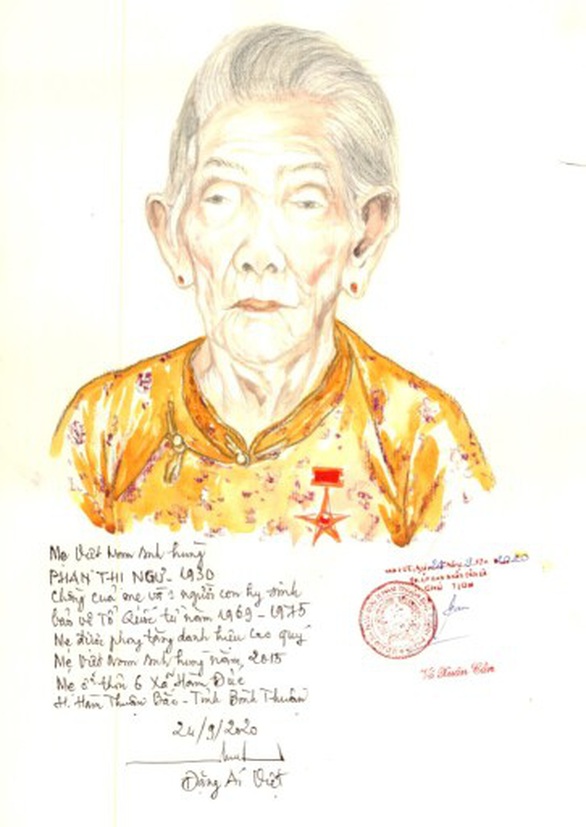 Mẹ Việt Nam anh hùng
PHAN THỊ NGƯ - 1930
Chồng của mẹ và 1 người con hy sinh
bảo vệ Tổ Quốc từ năm 1969 - 1975
Mẹ được phong tặng danh hiệu cao quý
Mẹ Việt Nam anh hùng năm, 2015
Mẹ ở thôn 6 Xã Hàm Đức
H. Hàm Thuận Bắc - Tỉnh Bình Thuận
24/9/2020
Đặng Ái Việt
CHỦ TỊCH